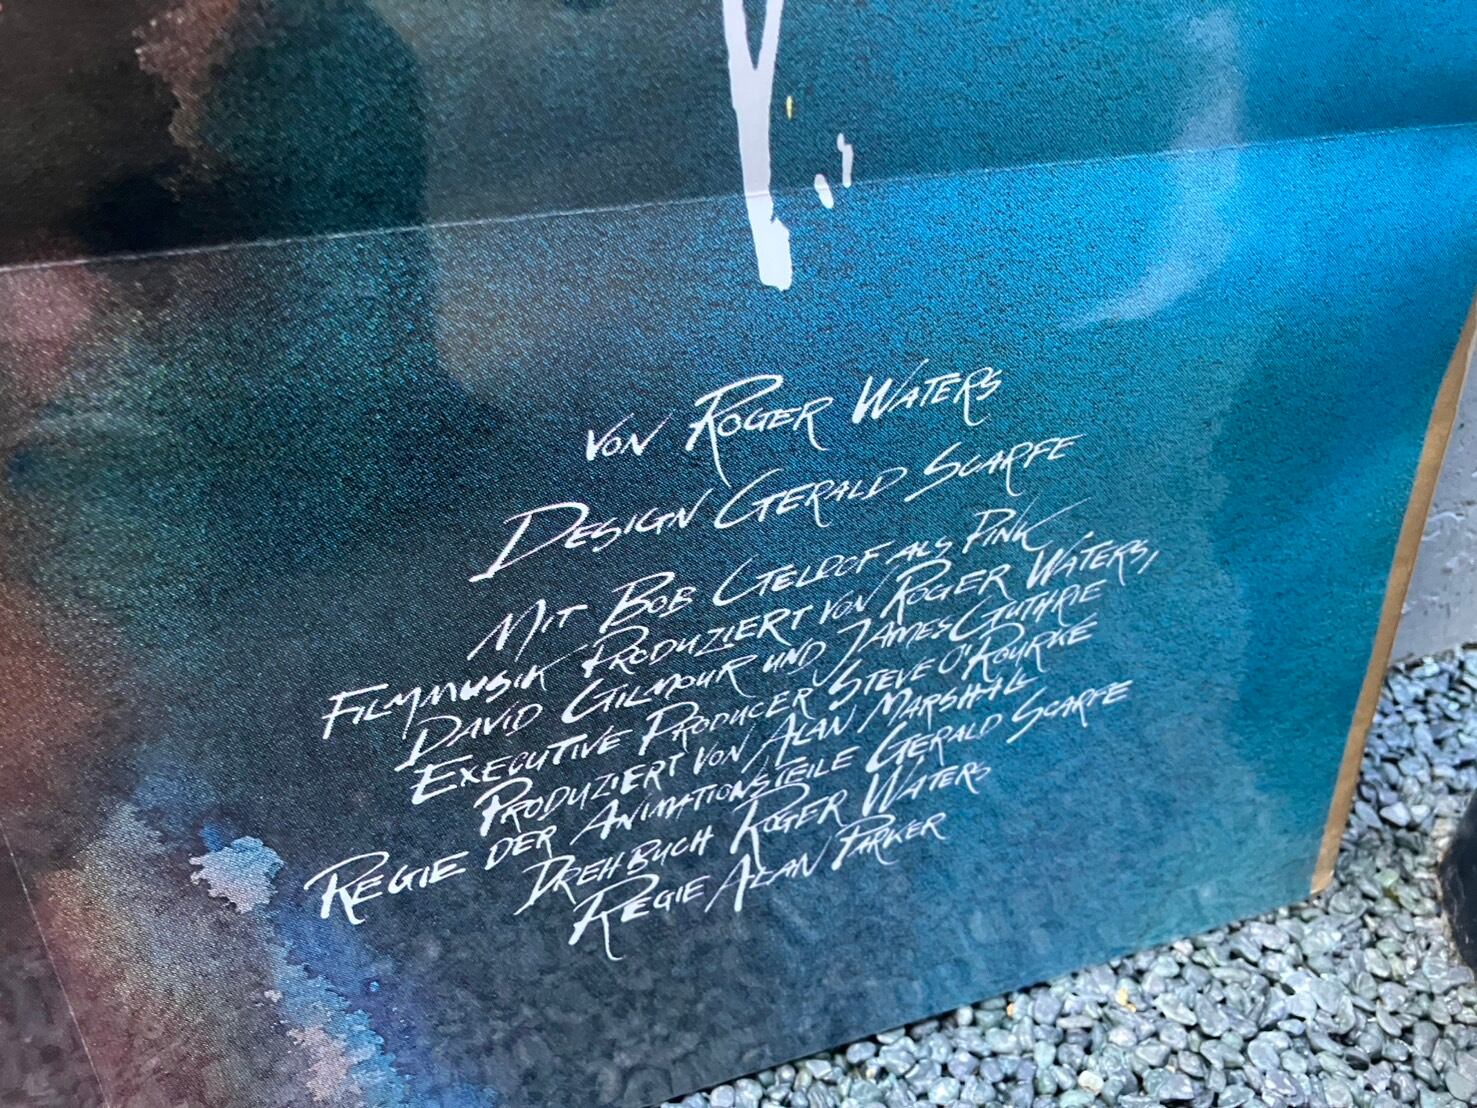 VON ROGER WATERS
DESIGN GERALD SCARFE
MIT BOB GELDOF ALS PINK
FILMMUSIK PRODUZIERT VON ROGER WATERS,
DAVID GILMOUR UND JAMES GUTHRIE
EXECUTIVE PRODUCER STEVE O'ROURKE
PRODUZIERT VON ALAN MARSHALL
REGIE DER ANIMATIONSTEILE GERALD SCARFE
DREHBUCH ROGER WATERS
REGIE ALAN PARKER